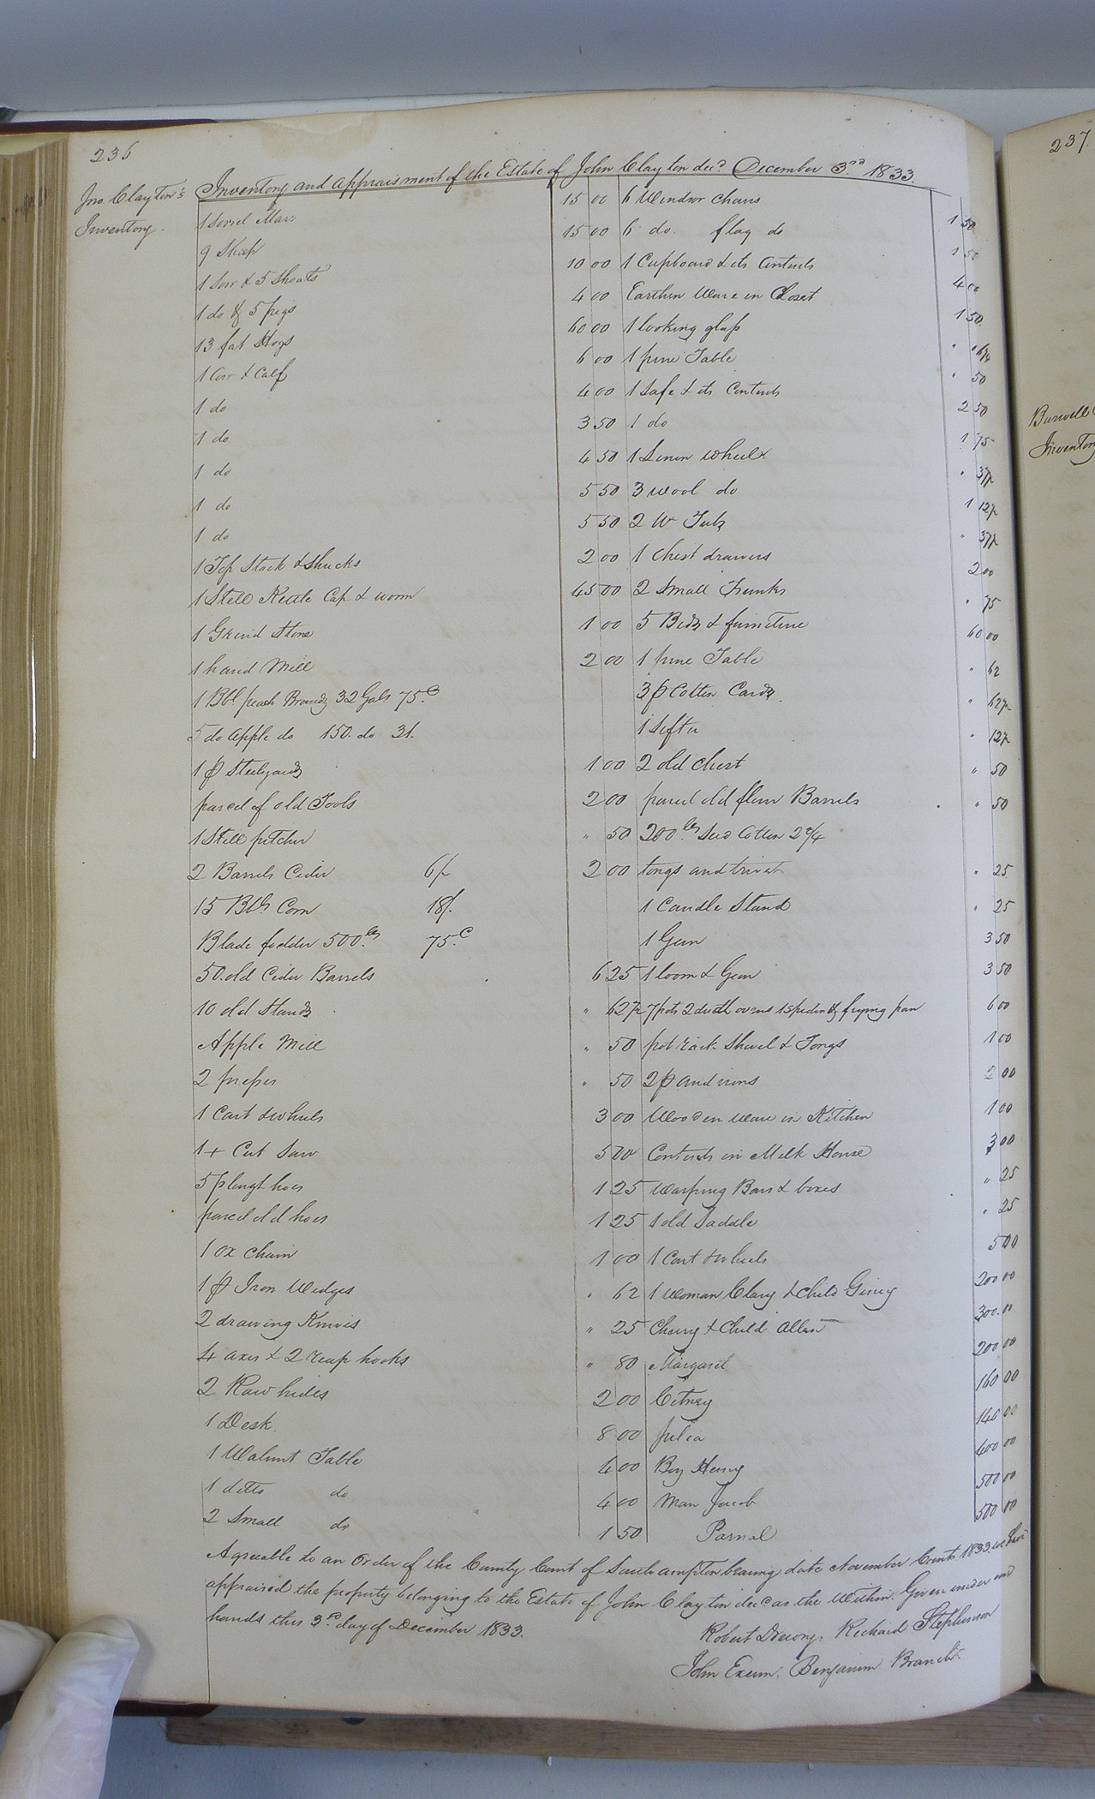 236
237.
Jno. Clayton's
Inventory.
Inventory and Appraisment of the Estate of John Clayton decd. December 3rd 1833.
1 Sorrel Mare 15 00
9 Sheep 15 00
1 Sow & 5 Shoats 10 00
1 do & 5 pigs 4 00
13 fat Hogs 60 00
1 Cow & Calf 6 00
1 do 4 00
1 do 3 50
1 do 4 50
1 do 5 50
1 do 5 50
1 Top Stack & Shucks 2 00
1 Still Kettle Cap & worm 45 00
1 Grind Stone 1 00
1 hand Mill 2 00
1 Bbl peach Brandy 32 Gals 75c
5 do apple do 150 do 31.
1 p Steelyards 1 00
parcel of old Tools 2 00
1 Still pitcher " 50
2 Barrels Cider 6/- 2 00
15 Bbls Corn 18/.
Blade fodder 500 lbs 75.c
50 old Cider Barrels 6 25
10 old Stands " 62½
Apple Mill " 50
2 presses " 50
1 Cart & wheels 3 00
1 + Cut Saw 5 00
5 plough hoes 1 25
parcel old hoes 1 25
1 ox chain 1 00
1 p Iron Wedges " 62
2 drawing Knives " 25
4 axes & 2 reap hooks " 80
2 Raw hides 2 00
1 Desk 8 00
1 Walnut Table 4 00
1 ditto do 4 00
2 Small do 1 50
6 Windsor Chairs 1 50
6 do. flag do 1 50
1 Cupboard & its Contents 4 00
Earthen Ware in Closet 1 50
1 looking glass " "6¼
1 pine Table " 50
1 Safe & its Contents 2 50
1 do 1 75
1 Linen wheel " 37½
3 wool do 1 12½
2 W Tubs " 37½
1 Chest drawers 2 00
2 Small Trunks " 75
5 Beds & furniture 60 00
1 pine Table " 62
3 p Cotton Cards " 62½
1 Sifter " 12½
2 old chest " 50
parcel old flour Barrels " 50
200 lbs Seed Cotton 2¼
tongs and trivet " 25
1 Candle Stand " 25
1 Gun 3 50
1 loom & Gear 3 50
7 pots 2 duth ovens 1 spider & frying pan 6 00
pot rack Shovel & Tongs 1 00
2 p and irons 2 00
Wooden ware in Kitchen 1 00
Contents in Milk House 3 00
Warping Bars & boxes " 25
1 old Saddle " 25
1 Cart & wheels 5 00
1 Woman Clary & Child Giney 200 00
Cherry & Child Allen 300.00
Margaret 200 00
160 00
Julia 140 00
Boy Henry 400 00
Man Jacob 500 00
Parnal 500 00
Agreeable to an Order of the County Court of Southampton bearing date November Court 1833. we have
appraised the property belonging to the Estate of John Clayton decd as the Within. Given under our
hands this 3rd day of December 1833.
Robert Richard Stephenson
John Exum. Benjamin Branch.
Burwell
Inventory